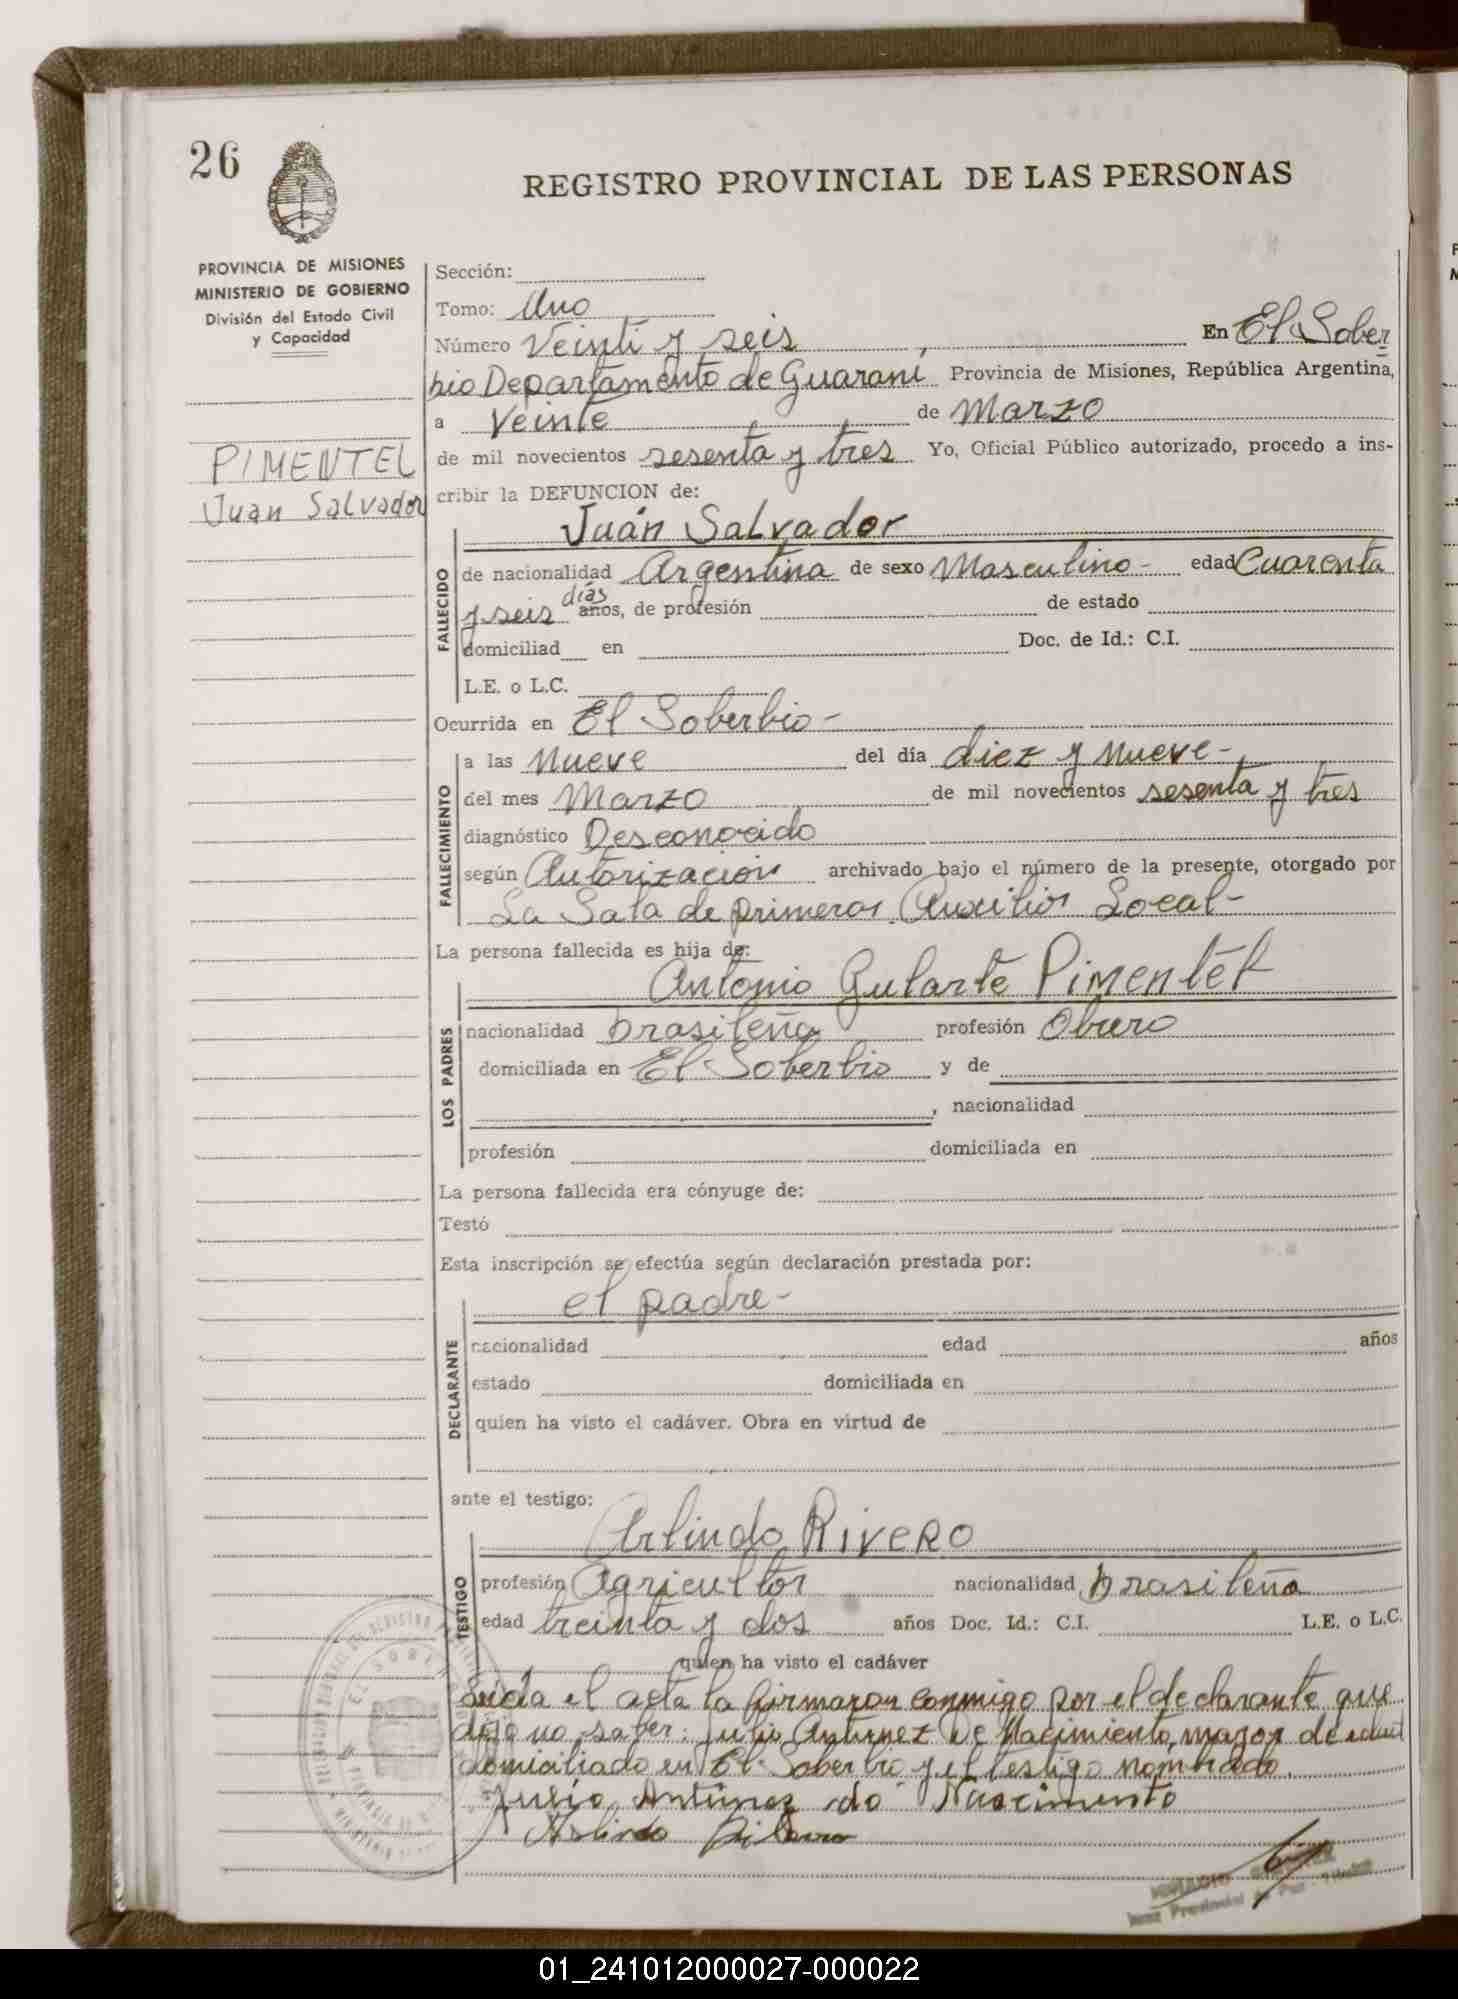 26
REGISTRO PROVINCIAL DE LAS PERSONAS
PROVINCIA DE MISIONES
MINISTERIO DE GOBIERNO
División del Estado Civil
y Capacidad
PIMENTEL
Juan Salvador
Sección:
Tomo: Uno
Número Veinti y seis, En El Sober
bio Departamento de Guaraní Provincia de Misiones, República Argentina,
a Veinte de Marzo
de mil novecientos sesenta y tres Yo, Oficial Público autorizado, procedo a ins-
cribir la DEFUNCION de:
Juán Salvador
FALLECIDO
de nacionalidad Argentina de sexo Masculino - edad Cuarenta
días
y seis años, de profesión de estado
domiciliad en Doc. de Id.: C.I.
L.E. o L.C.
Ocurrida en El Soberbio -
FALLECIMIENTO
a las nueve del día diez y nueve -
del mes Marzo de mil novecientos sesenta y tres
diagnóstico Desconocido
según Autorización archivado bajo el número de la presente, otorgado por
La Sala de primeros Auxilios Local -
La persona fallecida es hija de:
Antonio Gularte Pimentel
LOS PADRES
nacionalidad brasileña profesión Obrero
domiciliada en El Soberbio y de
, nacionalidad
profesión domiciliada en
La persona fallecida era cónyuge de:
Testó
Esta inscripción se efectúa según declaración prestada por:
el padre -
DECLARANTE
nacionalidad edad años
estado domiciliada en
quien ha visto el cadáver. Obra en virtud de
ante el testigo:
Arlindo Rivero
TESTIGO
profesión Agricultor nacionalidad brasileña
edad treinta y dos años Doc. Id.: C.I. L.E. o L.C.
quien ha visto el cadáver
el acta la firmaron conmigo por el declarante que
dijo no saber: Julio Antunez De Nacimiento, mayor de edad
domiciliado en El Soberbio y el testigo nombrado.
Julio Antunez do Nascimento
EL SOBERBIO
01_241012000027-000022